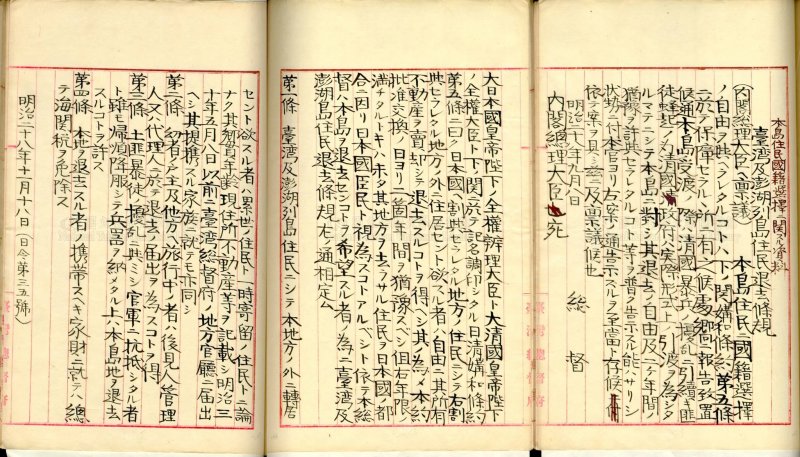 本島住民國籍選擇ニ関スル資料
臺湾及澎湖列島住民退去條規
內閣総理大臣ヘ禀議　本島住民ニ國籍選擇
ノ自由ヲ與ヘラレタルコトハ下ノ関媾和條約第五條
ニ於テ保障セラレタル所ニ有之候處鄉ニ報告致置
候通本島受渡ノ際ハ清國暴兵ノ擾乱引續キ匪
徒蜂起ノ為清國政府ハ実際形式上ノ引渡ヲ為シタ
ルマテニシテ本島ニ對シ其退去ノ自由及二ヶ年間ノ
猶豫ヲ許シタルコト等ヲ普ク告示スル能ハサリシ
状勢ニ付本官ヨリ右案ノ通告示スルヲ至當ト存候條
依テ案ヲ具シ玆ニ及禀議候也
明治二十八年九月八日
総督
內閣總理大臣宛
大日本國皇帝陛下ノ全權辨理大臣ト大清國皇帝陛下
ノ全權大臣トカ下ノ関ニ於テ記名調印シタル日清媾和條約
第五條ニ曰ク日本國ヘ割與セラレタル地方ノ住民ニシテ右割
與セラレタル地方ノ外ニ住居セント欲スル者ハ自由ニ其所有
不動産ヲ賣却シテ退去スルコトヲ得ヘシ其ノ為メ本約
批准交換ノ日ヨリ二箇年間ヲ猶豫スヘシ但右年限ノ
満チタルトキハ未タ其地方ヲ去ラサル住民ヲ日本國ノ都
合ニ因リ日本國臣民ト視為スコトアルヘシト依テ本総
督ハ本島ヲ退去センコトヲ希望スル者ノ為ニ臺湾及
澎湖島住民退去條規左ノ通相定ム
第一條　臺湾及澎湖列島住民ニシテ本地方ノ外ニ轉居
セント欲スル者ハ累世ノ住民ト一時寄留ノ住民トニ論
ナク其郷貫年齢現住所不動産等ヲ記載シ明治三
十年五月八日以前ニ臺湾総督府ノ地方官廳ニ届出
ヘシ其提携スル家族ニ就テモ亦同シ
第二條　幼者ノ戸主及他方ヘ旅行中ノ者ハ後見人管理
人又ハ代理人ニ於テ退去ノ届出ヲ為スコトヲ得
第三條　土匪暴徒ノ擾乱ニ與ミシ官軍ニ抗抵シタル者
ト雖モ帰順降服シテ兵器ヲ納メタル上ハ本島地ヲ退去
スルコトヲ許ス
第四條　本地ヲ退去スル者ノ携帯スヘキ家財ニ就テハ總
テ海関税ヲ免除ス
明治二十八年十一月十八日（日令第三五號）
臺灣總督府
臺灣總督府